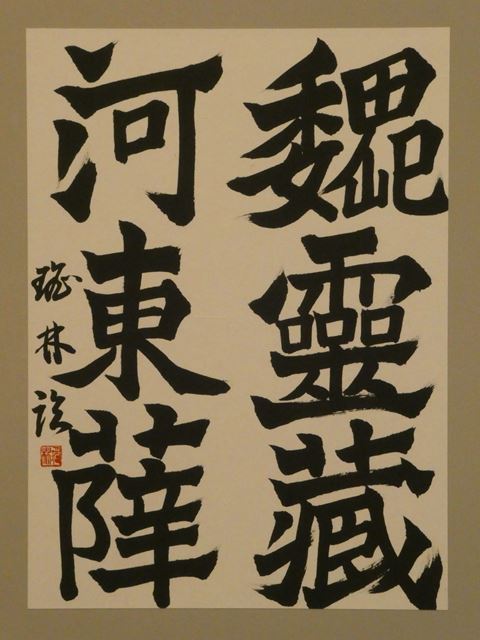 魏靈藏
河東薛
瑤林臨